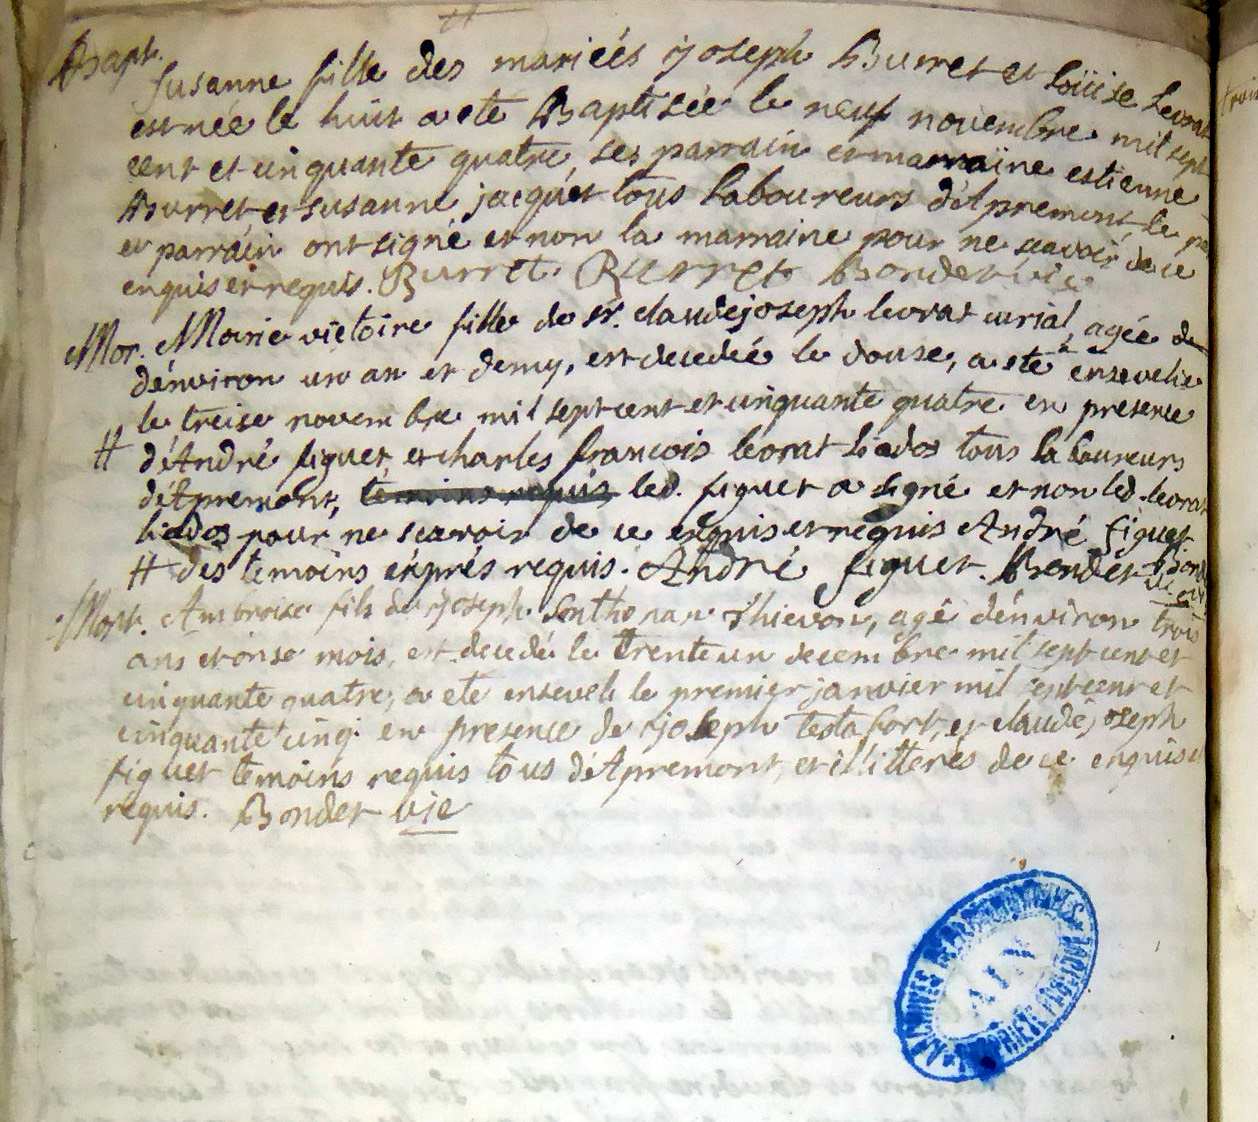 Bapt.
Susanne fille des mariées Joseph Burret et Loüise Levrat
est née le huit a eté Baptisée le neuf novembre mil sept
cent et cinquante quatre, ses parrain et marraine estienne
Burret et Susanne jacquet tous Laboureurs d'Apremont le
et parrain ont signé et non la marraine pour ne scavoir de ce
enquis et requis. Burret Burret Bondet vic
Mor. Marie victoire fille de sr. claude joseph levrat curial, agée de
d'énviron un an et demy, est decedée le douse, a eté ensevelie
le treise novembre mil sept cent et cinquante quatre en presence
# d'André figuet, et charles francois levrat liados tous laboureurs
d'Apremont, temoins requis led. figuet a signé et non led. levrat
liados pour ne scavoir de ce enquis et requis André figuet
# des temoins éxprés requis. André figuet. Bondet
Mort. Ambroise fils de Joseph Sonthonax Thievon, agé d'énviron trois
ans et onse mois, est decedé le trente un decembre mil sept cent et
cinquante quatre, a eté enseveli le premier janvier mil sept cent et
cinquante cinq. en presence de Joseph testafort, et claude joseph
figuet temoins requis tous d'Apremont, et illitterés de ce enquis et
requis. Bondet vic
ARCHIVES DEPARTEMENTALES
AIN